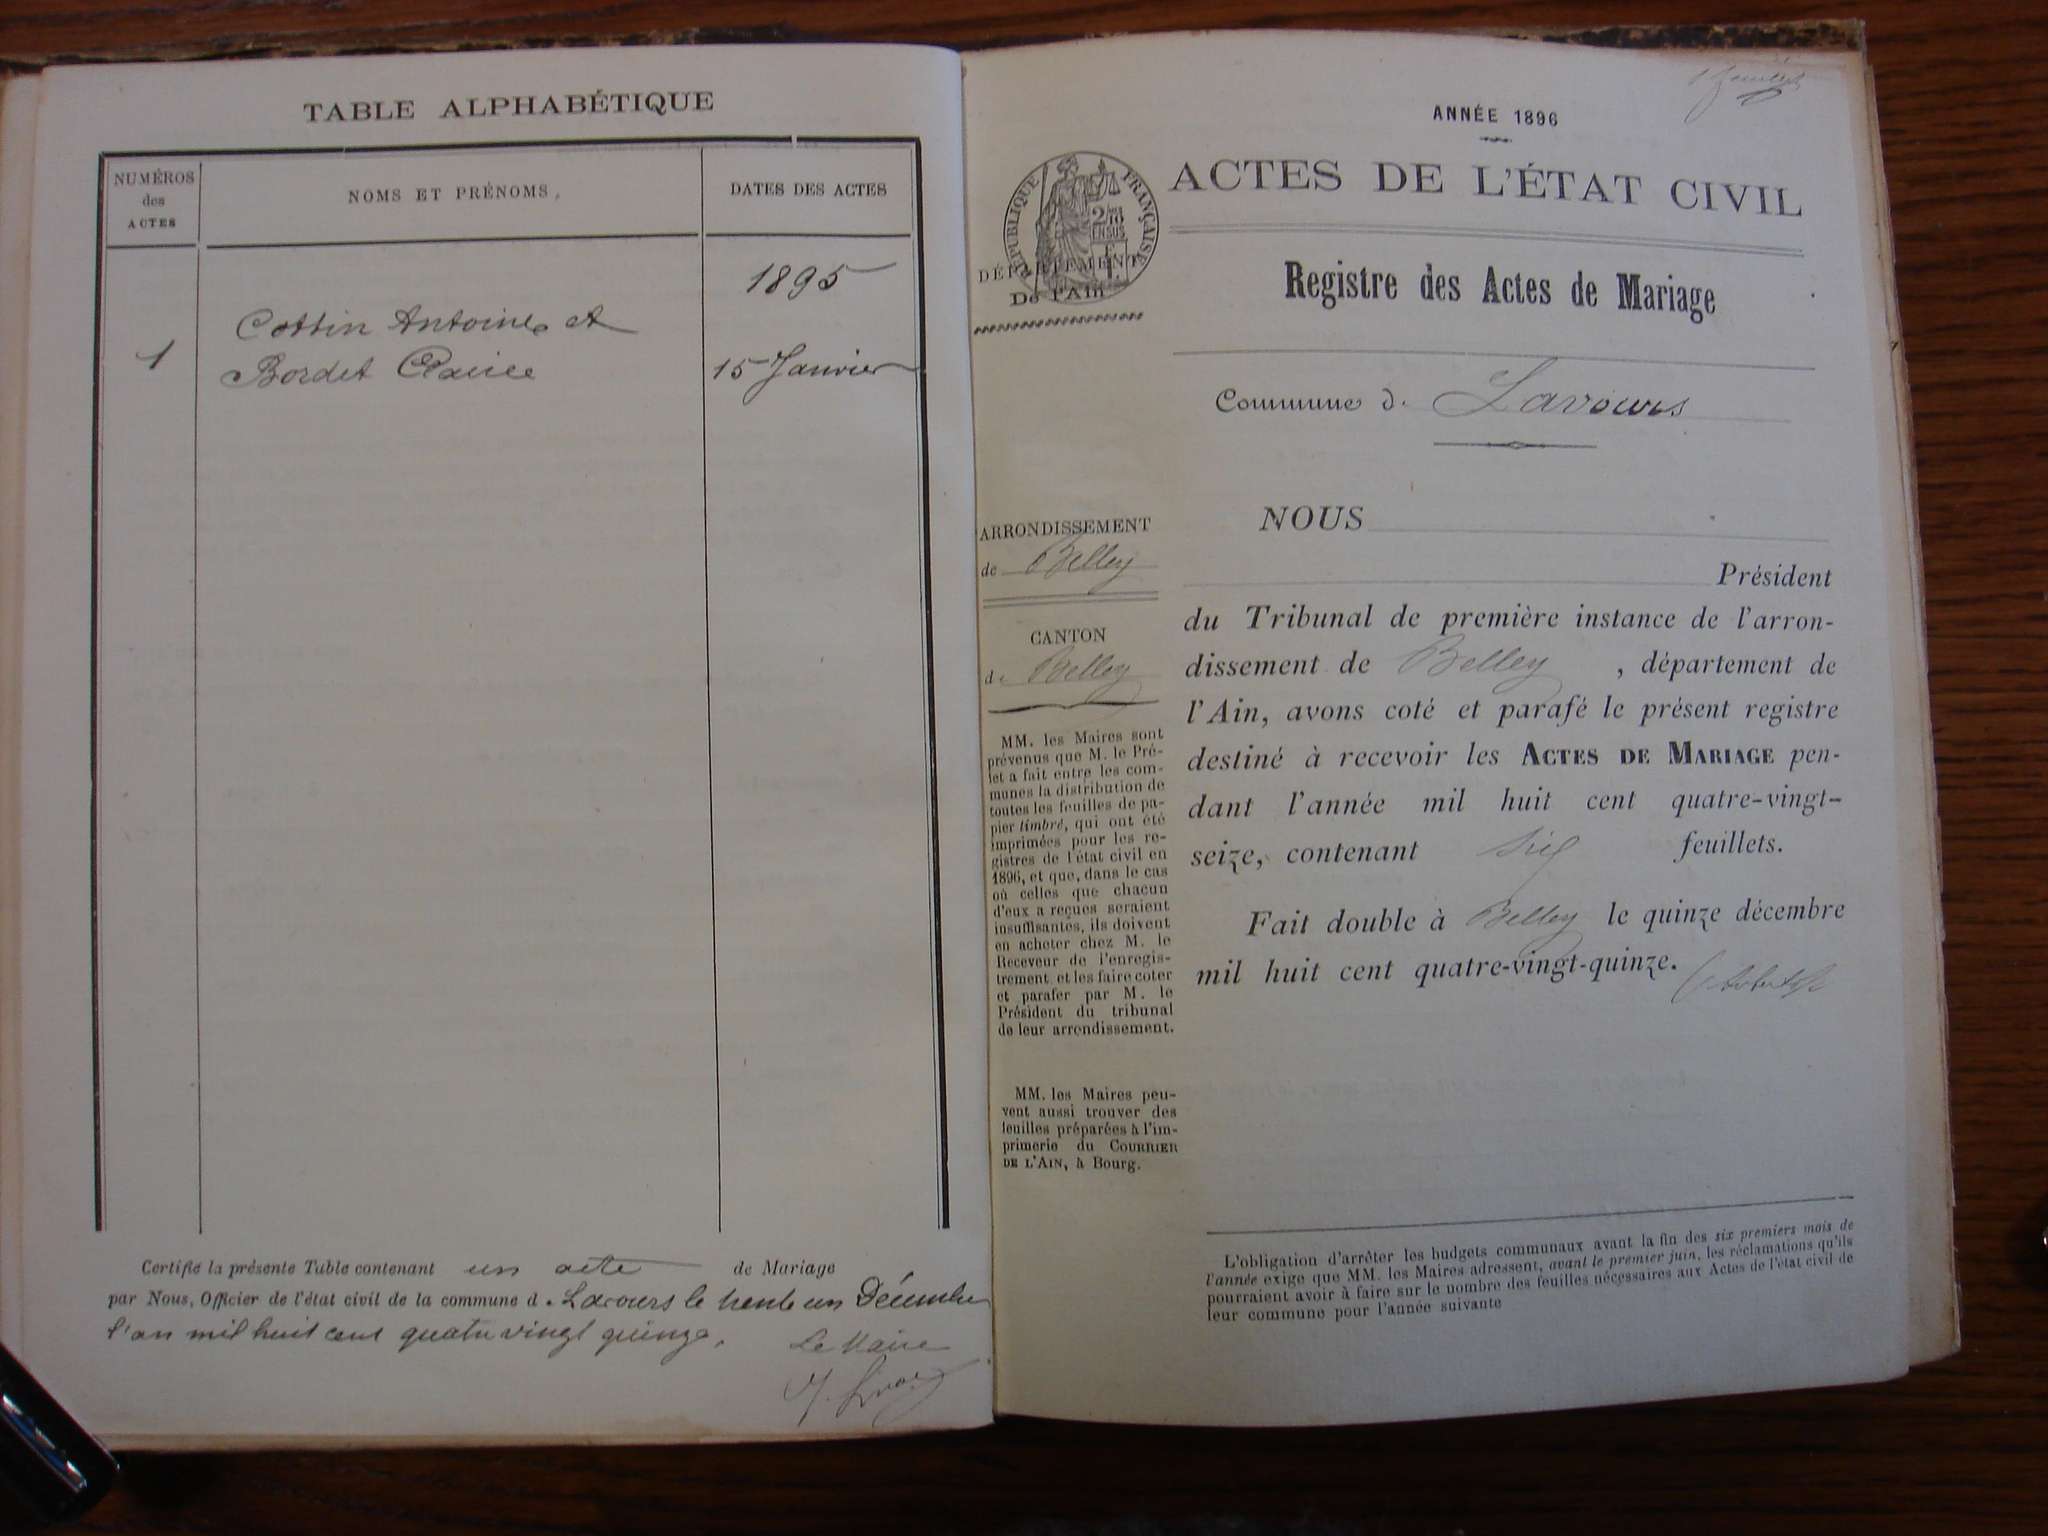 TABLE ALPHABÉTIQUE
NUMÉROS
des
ACTES
NOMS ET PRÉNOMS.
DATES DES ACTES
1895
Cottin Antoine et
1
Bordet Claire
15 Janvier
Certifié la présente Table contenant un acte de Mariage
par Nous, Officier de l'état civil de la commune d. Lavours le trente un Décembre
l'an mil huit cent quatre vingt quinze.
Le Maire
1er feuillet
ANNÉE 1896
RÉPUBLIQUE FRANÇAISE
ACTES DE L'ÉTAT CIVIL
DÉPARTEMENT
De l'Ain
Registre des Actes de Mariage
Commune de Lavours
ARRONDISSEMENT
de Belley
CANTON
de Belley
MM. les Maires sont
prévenus que M. le Pré-
fet a fait entre les com-
munes la distribution de
toutes les feuilles de pa-
pier timbré, qui ont été
imprimées pour les re-
gistres de l'état civil en
1896, et que, dans le cas
où celles que chacun
d'eux a reçues seraient
insuffisantes, ils doivent
en acheter chez M. le
Receveur de l'enregis-
trement et les faire coter
et parafer par M. le
Président du tribunal
de leur arrondissement.
MM. les Maires peu-
vent aussi trouver des
feuilles préparées à l'im-
primerie du COURRIER
DE L'AIN, à Bourg.
NOUS
Président
du Tribunal de première instance de l'arron-
dissement de Belley , département de
l'Ain, avons coté et parafé le présent registre
destiné à recevoir les ACTES DE MARIAGE pen-
dant l'année mil huit cent quatre-vingt-
seize, contenant six feuillets.
Fait double à Belley le quinze décembre
mil huit cent quatre-vingt-quinze.
L'obligation d'arrêter les budgets communaux avant la fin des six premiers mois de
l'année exige que MM. les Maires adressent, avant le premier juin, les réclamations qu'ils
pourraient avoir à faire sur le nombre des feuilles nécessaires aux Actes de l'état civil de
leur commune pour l'année suivante